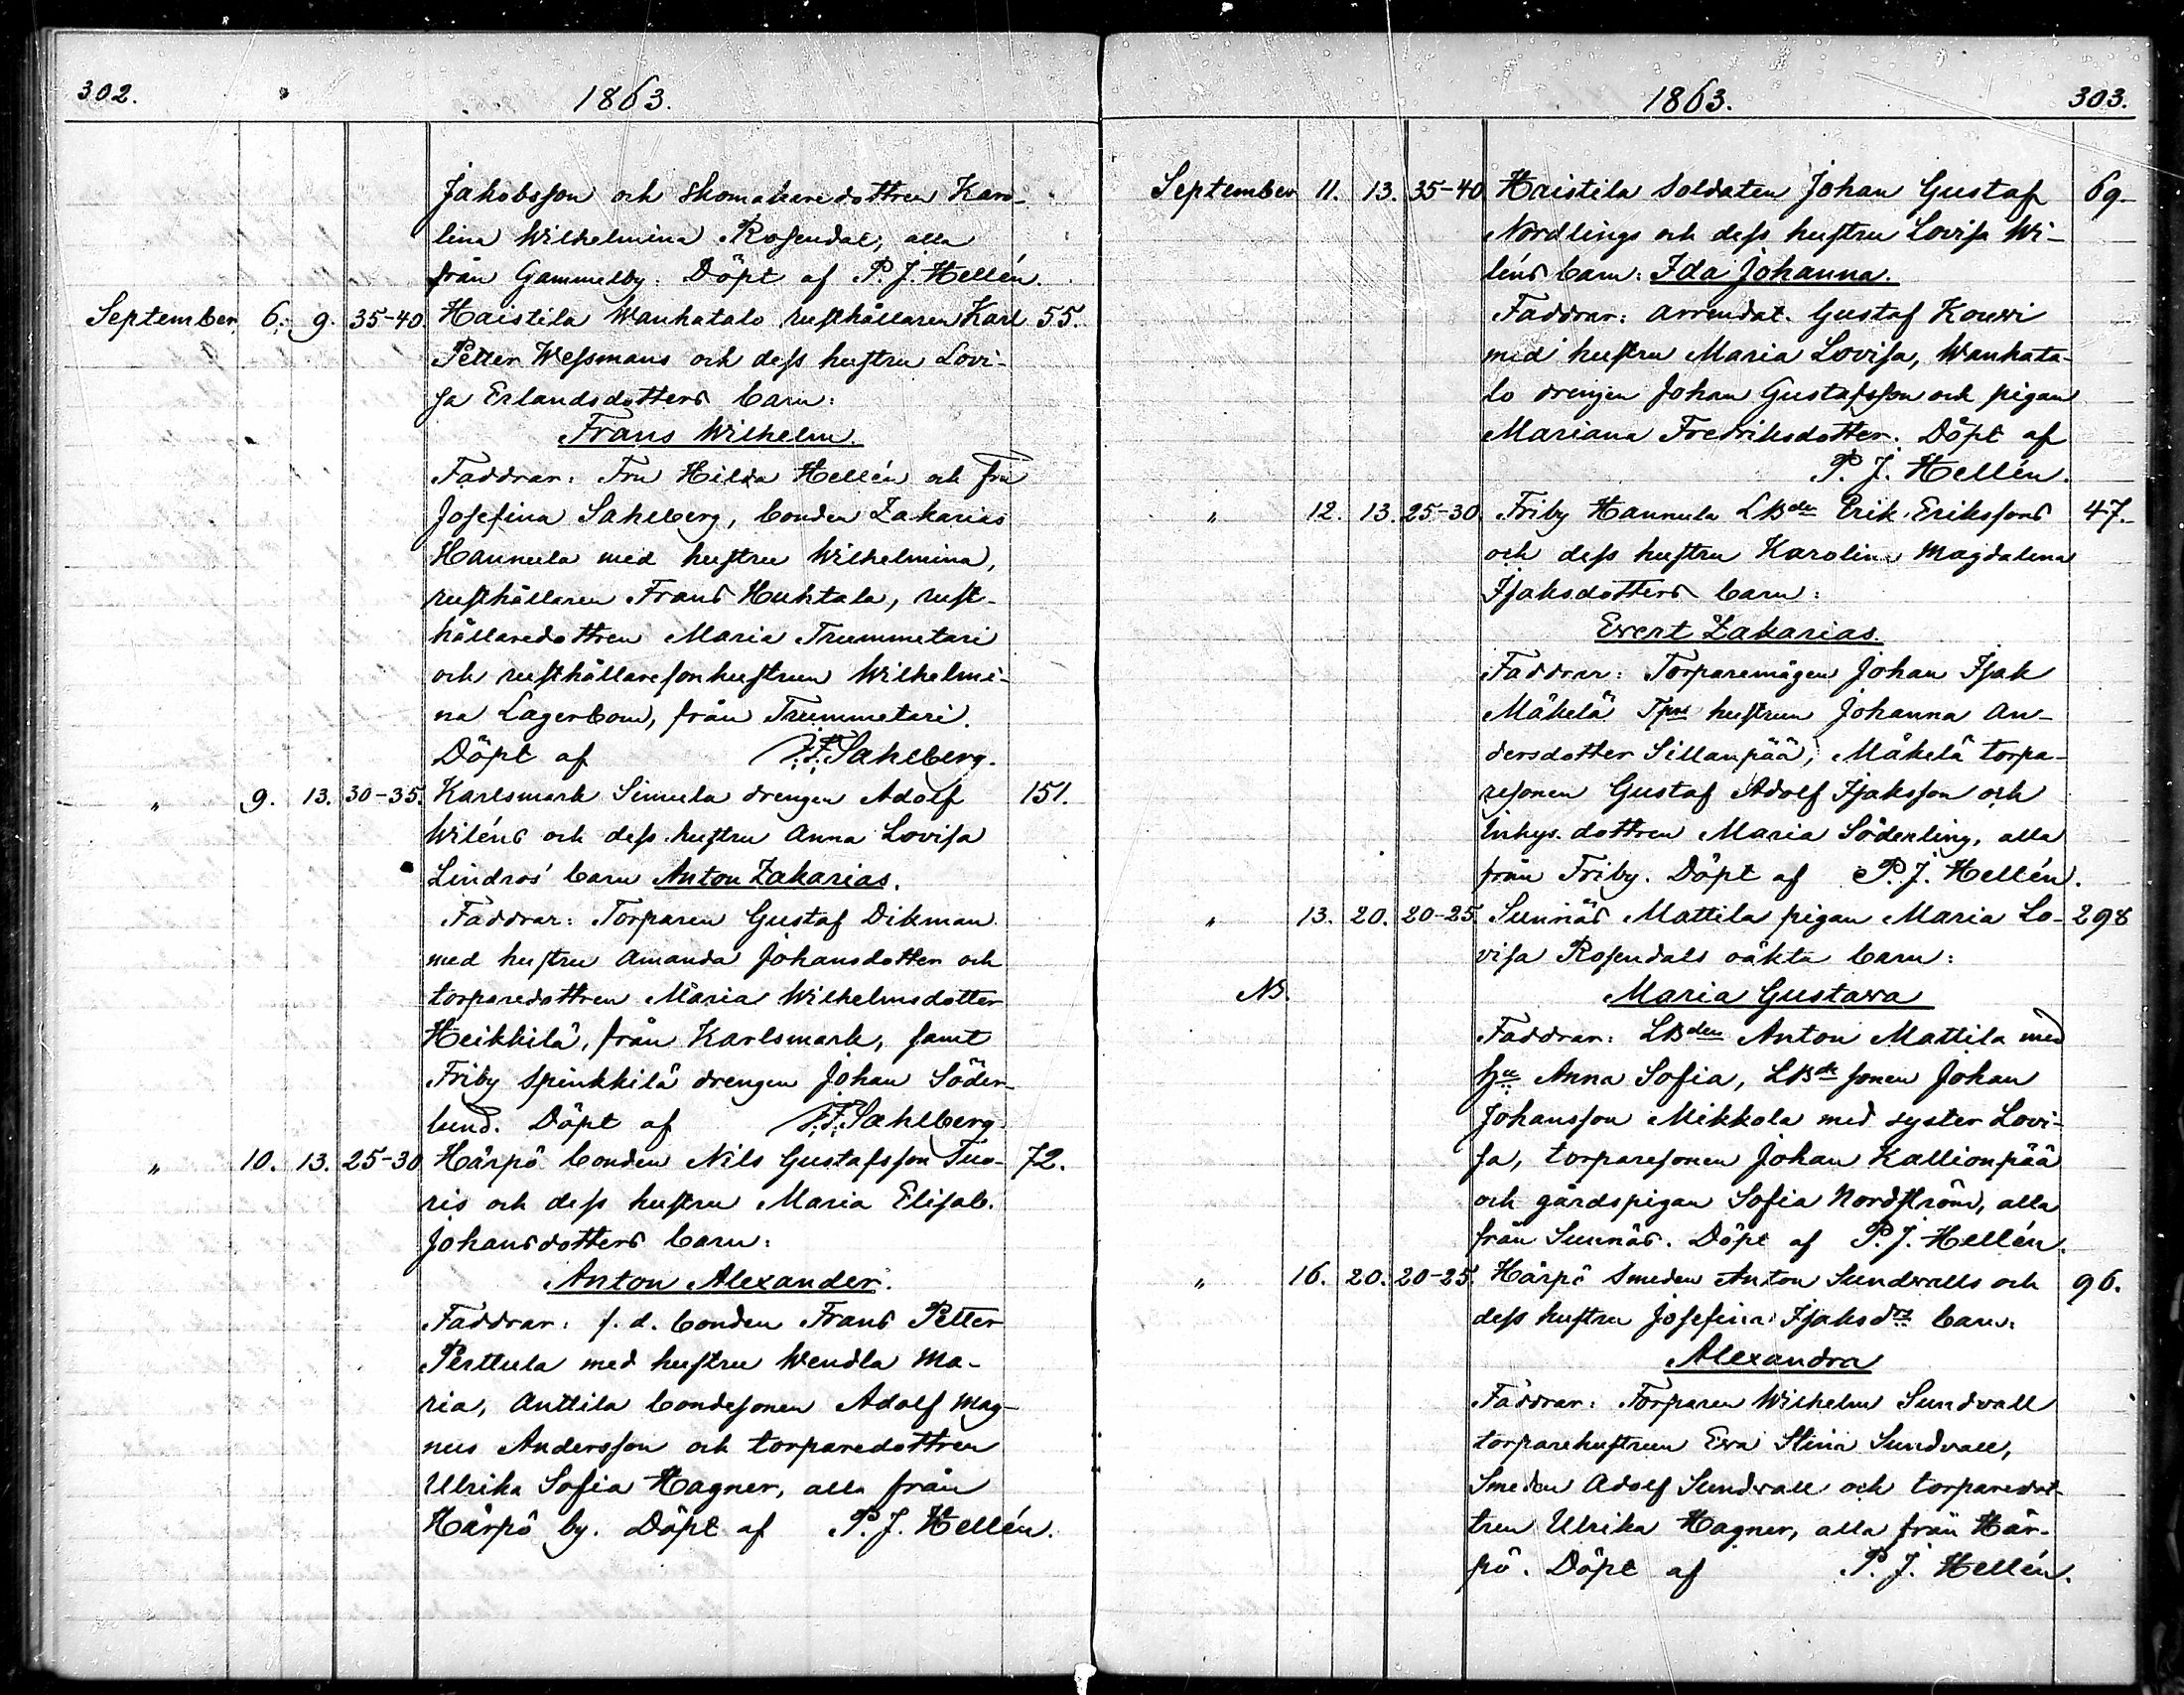 302.
1863.
Jakobsson och skomakaredottren Karo-
lina Wilhelmina Rosendal, alla
från Gammelby. Döpt af P. J. Hellén.
September 6. 9. 35-40. Haistila Wanhatalo rusthållaren Karl 55.
Petter Wessmans och dess hustru Lovi-
sa Erlandsdotters barn:
Frans Wilhelm.
Faddrar: Fru Hilda Hellén och fru
Josefina Sahlberg, bonden Zakarias
Hannula med hustru Wilhelmina,
rusthållaren Frans Huhtala, rust-
hållaredottren Maria Trummetari
och rusthållaresonhustrun Wilhelmi-
na Lagerbom, från Trummetari.
Döpt af F. F. Sahlberg.
" 9. 13. 30-35. Karlsmark Simula drengen Adolf 151.
Wiléns och dess hustru Anna Lovisa
Lindros' barn Anton Zakarias.
Faddrar: Torparen Gustaf Dikman
med hustru Amanda Johansdotter och
torparedottren Maria Wilhelmsdotter
Heikkilä, från Karlsmark, samt
Friby Spinkkilä drengen Johan Söder-
lund. Döpt af F. F. Sahlberg
" 10. 13. 25-30 Härpö bonden Nils Gustafsson Tuo- 72.
ris och dess hustru Maria Elisab.
Johansdotters barn:
Anton Alexander.
Faddrar: f. d. bonden Frans Petter
Perttula med hustru Wendla Ma-
ria, Anttila bondesonen Adolf Mag-
nus Andersson och torparedottren
Ulrika Sofia Hagner, alla från
Härpö by. Döpt af P. J. Hellén.
1863.
303.
September 11. 13. 35-40 Haistila Soldaten Johan Gustaf 69.
Nordlings och dess hustru Lovisa Wi-
léns barn: Ida Johanna.
Faddrar: Arrendat. Gustaf Kouvi
med hustru Maria Lovisa, Wanhata-
lo drengen Johan Gustafsson och pigan
Mariana Fredriksdotter. Döpt af
P. J. Hellén.
" 12. 13. 25-30. Friby Hannula LBden Erik Erikssons 47.
och dess hustru Karolina Magdalena
Isaksdotters barn:
Evert Zakarias.
Faddrar: Torparemågen Johan Isak
Mäkelä Tpre hustrun Johanna An-
dersdotter Sillanpää, Mäkelä torpa-
resonen Gustaf Adolf Isaksson och
Inhys. dottren Maria Söderling, alla
från Friby. Döpt af P. J. Hellén.
" 13. 20. 20-25. Sunnäs Mattila pigan Maria Lo- 298
visa Rosendals oäkta barn:
NB. Maria Gustava
Faddrar: LBden Anton Mattila med
hu Anna Sofia, LBde sonen Johan
Johansson Mikkola med syster Lovi-
sa, torparesonen Johan Kallionpää
och gårdspigan Sofia Nordström, alla
från Sunnäs. Döpt af P. J. Hellén.
" 16. 20. 20-25. Härpö Smeden Anton Sundvalls och 96.
dess hustru Josefina Isaksdrs barn:
Alexandra
Faddrar: Torparen Wilhelm Sundvall
torparehustrun Eva Stina Sundvall,
Smeden Adolf Sundvall och torparedot-
tren Ulrika Hagner, alla från Här-
pö. Döpt af P. J. Hellén.